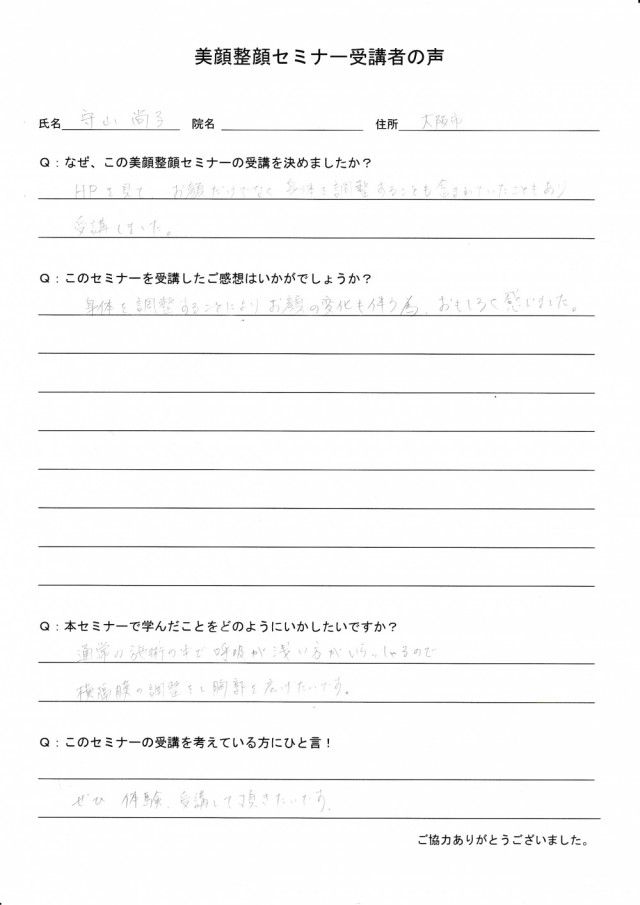 美顔整顔セミナー受講者の声
氏名 守山 尚子 院名 住所 大阪市
Q：なぜ、この美顔整顔セミナーの受講を決めましたか？
HPを見て、お顔だけでなく身体を調整することも含まれていたこともあり
受講しました。
Q：このセミナーを受講したご感想はいかがでしょうか？
身体を調整することによりお顔の変化も伴う為、おもしろく感じました。
Q：本セミナーで学んだことをどのようにいかしたいですか？
通常の施術の中で呼吸が浅い方がいらっしゃるので
横隔膜の調整をし胸郭を広げたいです。
Q：このセミナーの受講を考えている方にひと言！
ぜひ 体験、受講して頂きたいです。
ご協力ありがとうございました。